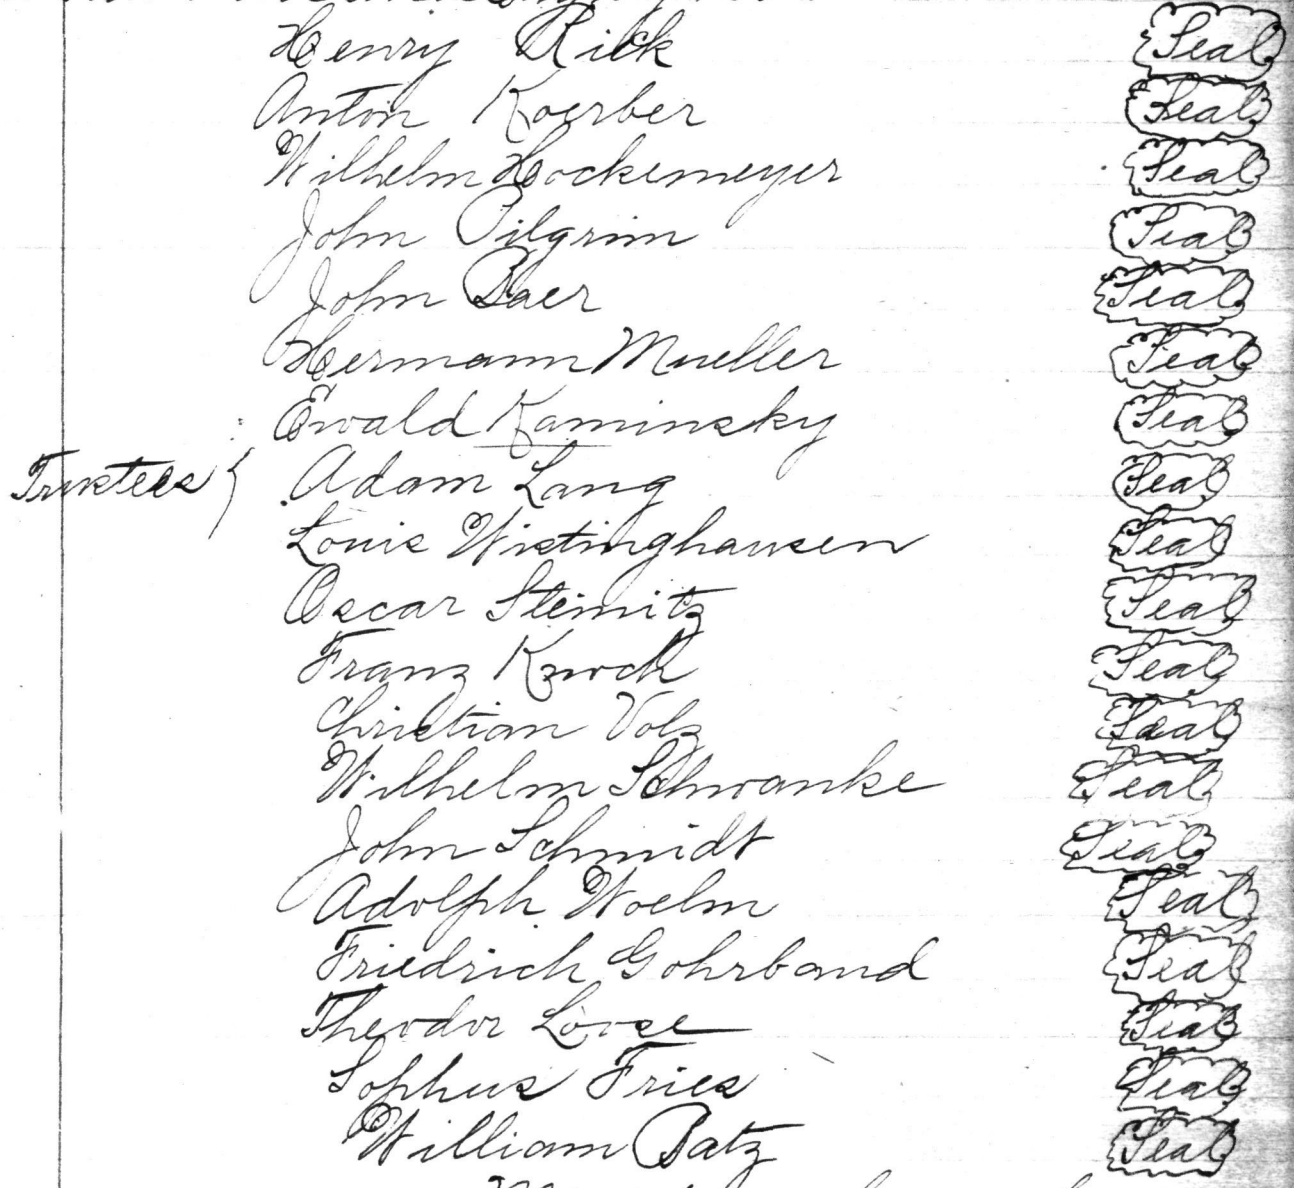 Henry Rick Seal
Anton Koerber Seal
Wilhelm Hockemeyer Seal
John Pilgrim Seal
John Baer Seal
Hermann Mueller Seal
Ewald Kaminsky Seal
Trustees { Adam Lang Seal
Louis Wistinghausen Seal
Oscar Steinitz Seal
Franz Knoch Seal
Christian Volz Seal
Wilhelm Schwanke Seal
John Schmidt Seal
Adolph Woelm Seal
Friedrich Gohrband Seal
Theodor Loose Seal
Sophus Fries Seal
William Batz Seal